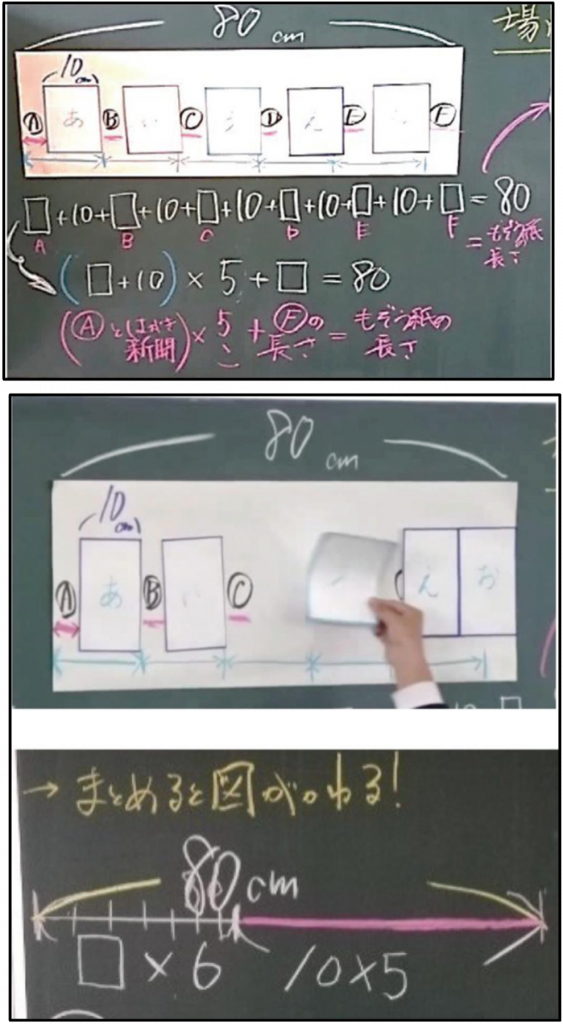 80 cm
場
10cm
Ⓐ あ Ⓑ い Ⓒ う Ⓓ え Ⓔ Ⓕ
□+10+□+10+□+10+□+10+□+10+□=80
A B C D E F =もぞう紙
長さ
(□+10)×5+□=80
(Ⓐとはがき新聞)×5こ+Ⓕの長さ=もぞう紙の長さ
80 cm
10cm
Ⓐ あ Ⓑ い Ⓒ え お
→まとめると図がかわる!
80cm
□×6 10×5